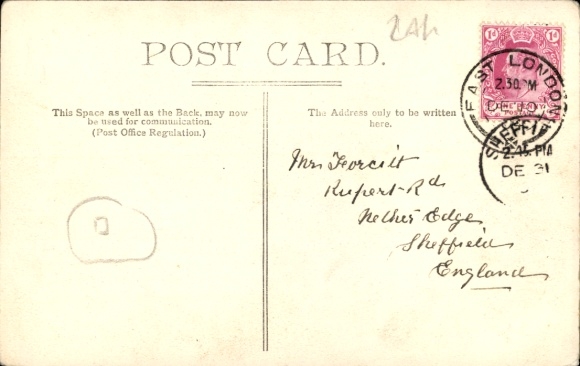 2Ah
POST CARD.
1d 1d
EAST LONDON
2.30 PM
DE 10
SHEFFIE
2.15. PM
DE 31
This Space as well as the Back, may now
be used for communication.
(Post Office Regulation.)
The Address only to be written
here.
Mrs
Rupert Rd
Nether Edge
Sheffield
England